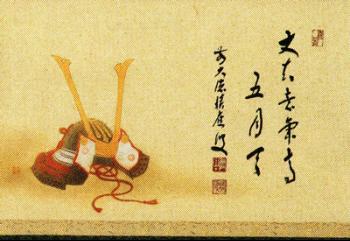 丈夫意氣高
五月天
前大徳